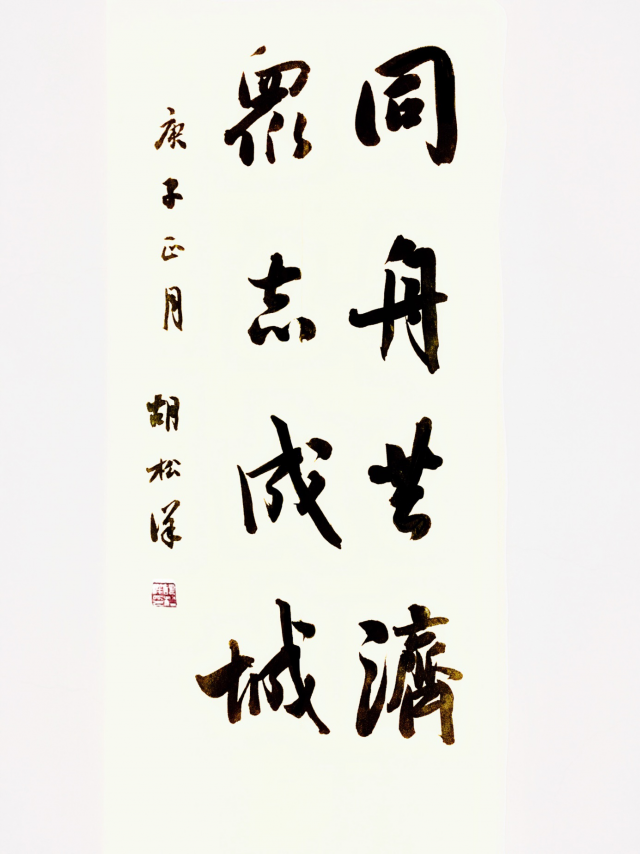 同舟共濟
眾志成城
庚子正月 胡松洋